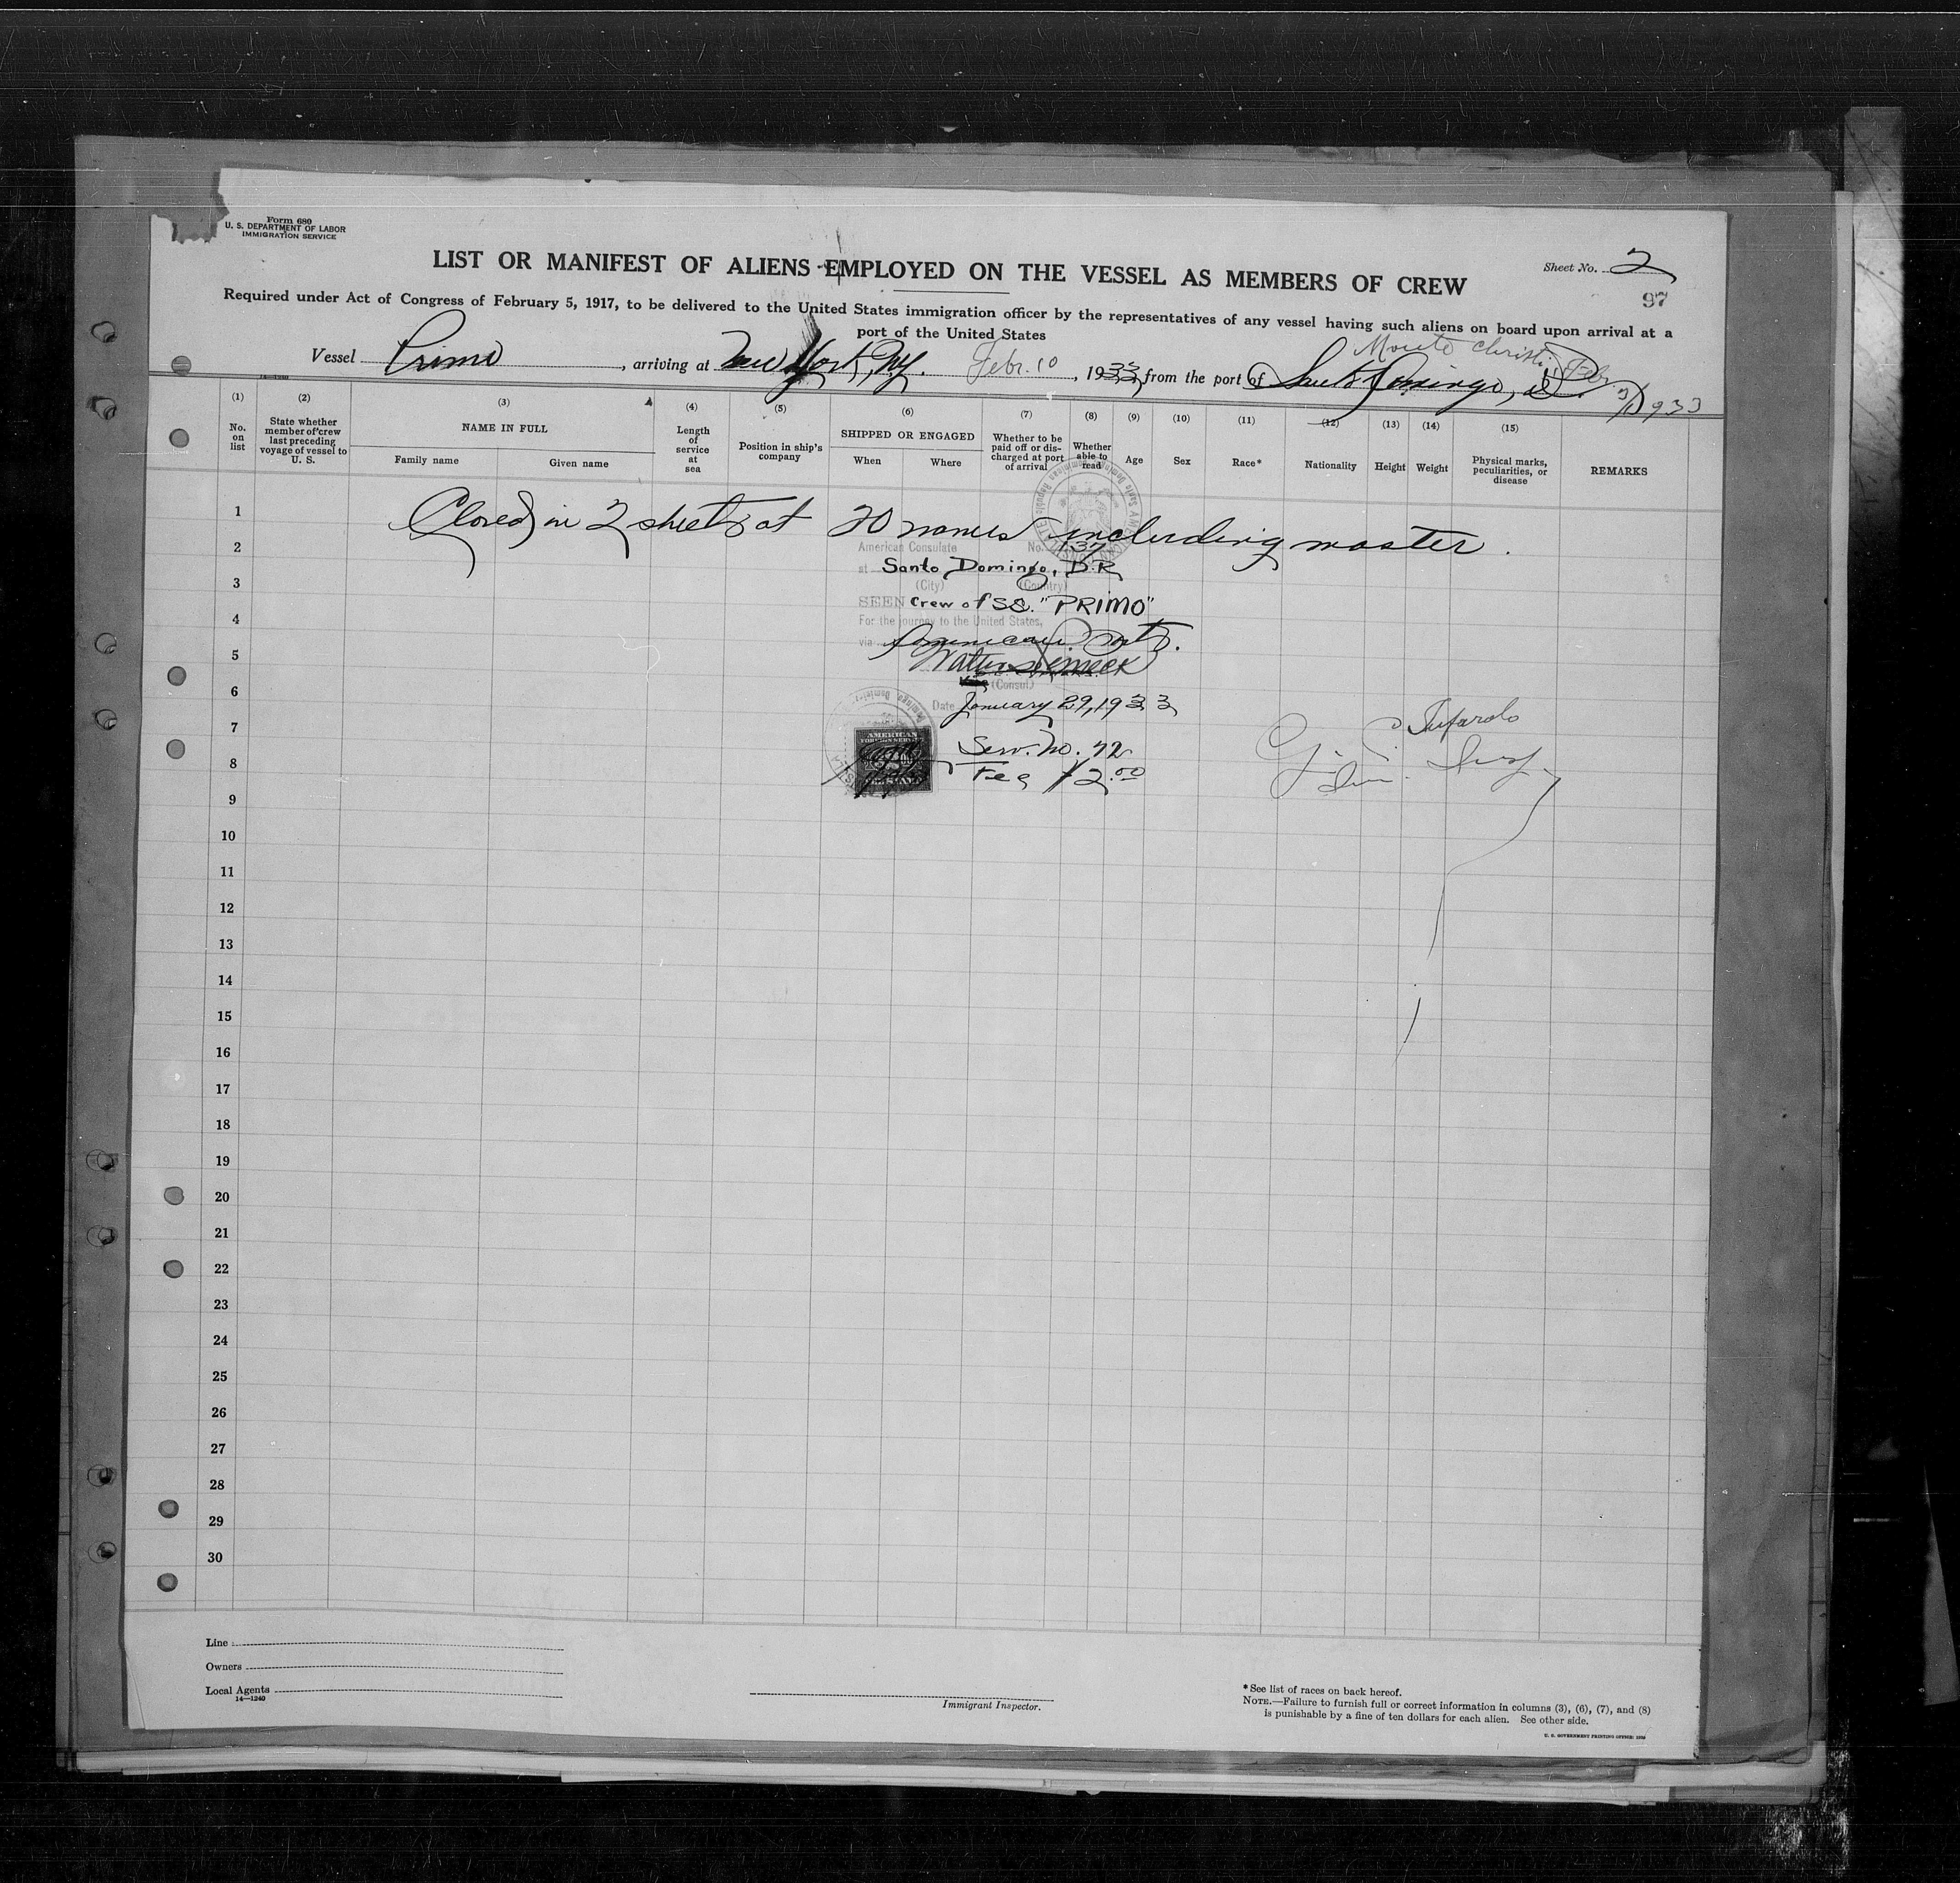 Form 680
U. S. DEPARTMENT OF LABOR
IMMIGRATION SERVICE
LIST OR MANIFEST OF ALIENS EMPLOYED ON THE VESSEL AS MEMBERS OF CREW
Sheet No. 2
97
Required under Act of Congress of February 5, 1917, to be delivered to the United States immigration officer by the representatives of any vessel having such aliens on board upon arrival at a
port of the United States
Monte Christi, Febr. 3/1933
Vessel Primo, arriving at New York, Ny. Febr. 10, 1933, from the port of Santo Domingo,
14—1240
(1) (2) (3) (4) (5) (6) (7) (8) (9) (10) (11) (12) (13) (14) (15)
No. on list
State whether member of crew last preceding voyage of vessel to U. S.
NAME IN FULL
Family name Given name
Length of service at sea
Position in ship's company
SHIPPED OR ENGAGED
When Where
Whether to be paid off or discharged at port of arrival
Whether able to read
Age
Sex
Race*
Nationality
Height
Weight
Physical marks, peculiarities, or disease
REMARKS
1
Closed in 2 sheets at 20 names including master.
2
American Consulate No. 137
at Santo Domingo, D.R
(City) (Country)
3
SEEN Crew of SS. "PRIMO"
4
For the journey to the United States,
via Dominican Ports.
5
(Consul)
6
Date January 29, 1933
7
Serv. No. 72
AMERICAN
FOREIGN SERVICE
8
Fee $2.00
9
10
11
12
13
14
15
16
17
18
19
20
21
22
23
24
25
26
27
28
29
30
Line
Owners
Local Agents
14—1240
Immigrant Inspector.
*See list of races on back hereof.
NOTE.—Failure to furnish full or correct information in columns (3), (6), (7), and (8)
is punishable by a fine of ten dollars for each alien. See other side.
U. S. GOVERNMENT PRINTING OFFICE: